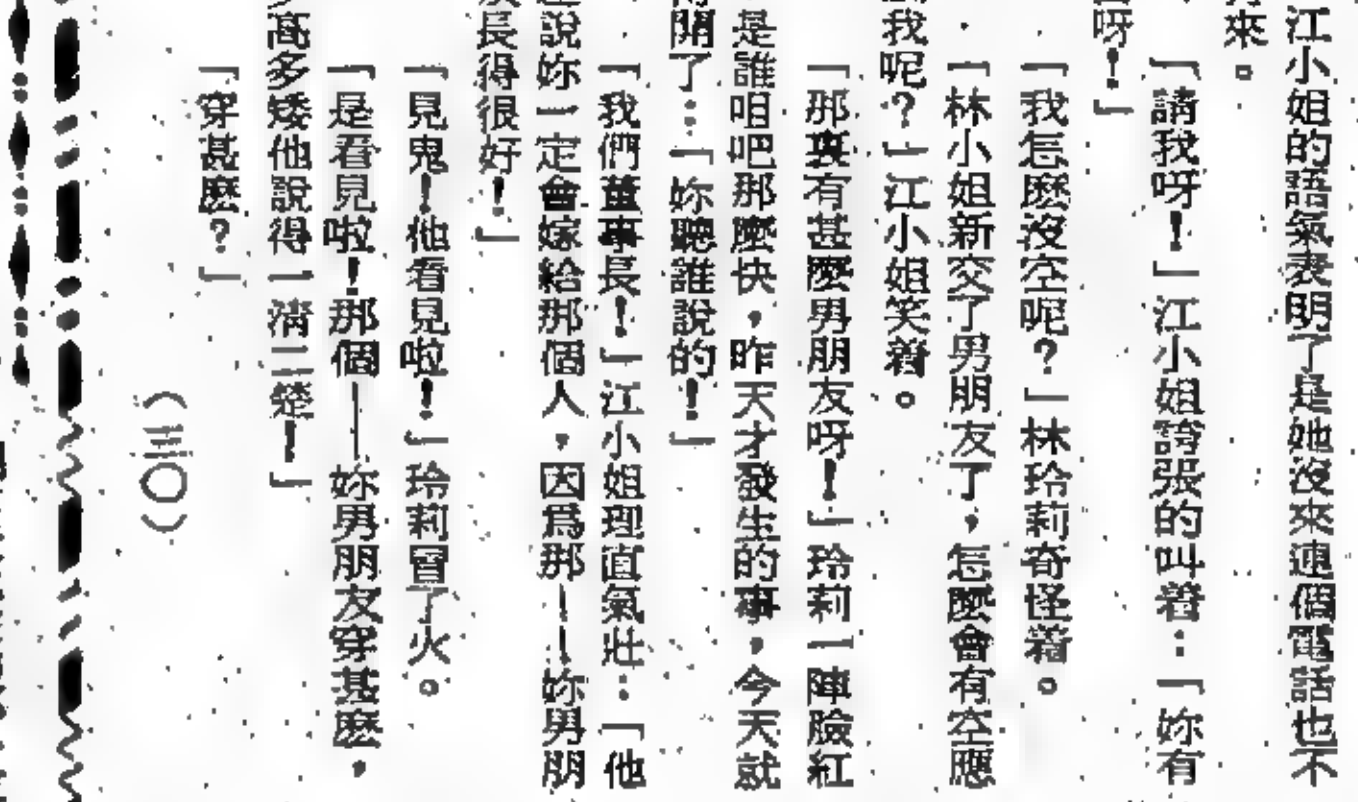 江小姐的語氣表明了是她沒來連個電話也不
來。
「請我呀！」江小姐誇張的叫着：「妳有
呀！」
「我怎麽沒空呢？」林玲莉奇怪着。
「林小姐新交了男朋友了，怎麽會有空應
我呢？」江小姐笑着。
「那裏有甚麽男朋友呀！」玲莉一陣臉紅
是誰咀吧那麽快，昨天才發生的事，今天就
開了：「妳聽誰說的！」
「我們董事長！」江小姐理直氣壯：「他
說妳一定會嫁給那個人，因爲那——妳男朋
長得很好！」
「見鬼！他看見啦！」玲莉冒了火。
「是看見啦！那個——妳男朋友穿甚麽，
高多矮他說得一清二楚！」
「穿甚麽？」
（三〇）